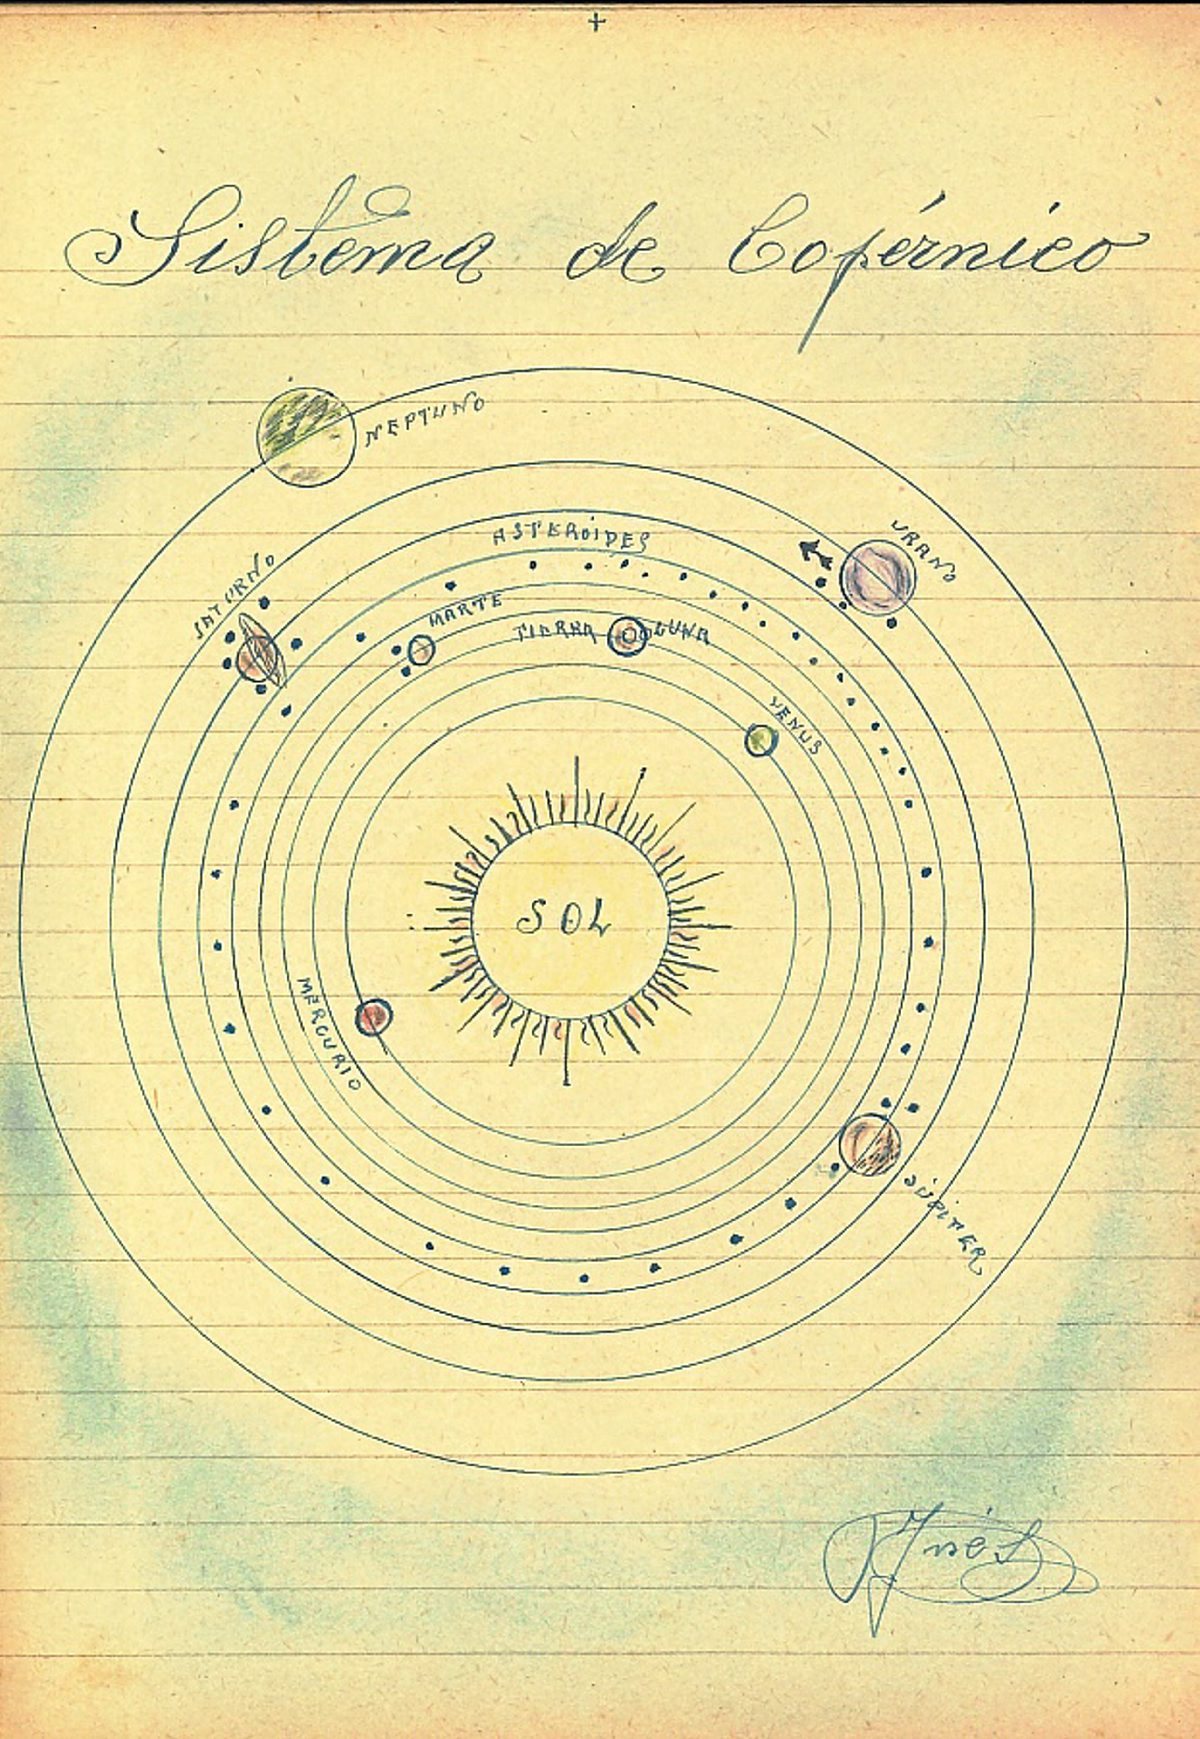 Sistema de Copérnico
NEPTUNO
URANO
ASTERÓIDES
SATURNO
MARTE
TIERRA LUNA
VENUS
SOL
MERCURIO
JÚPITER
Inés